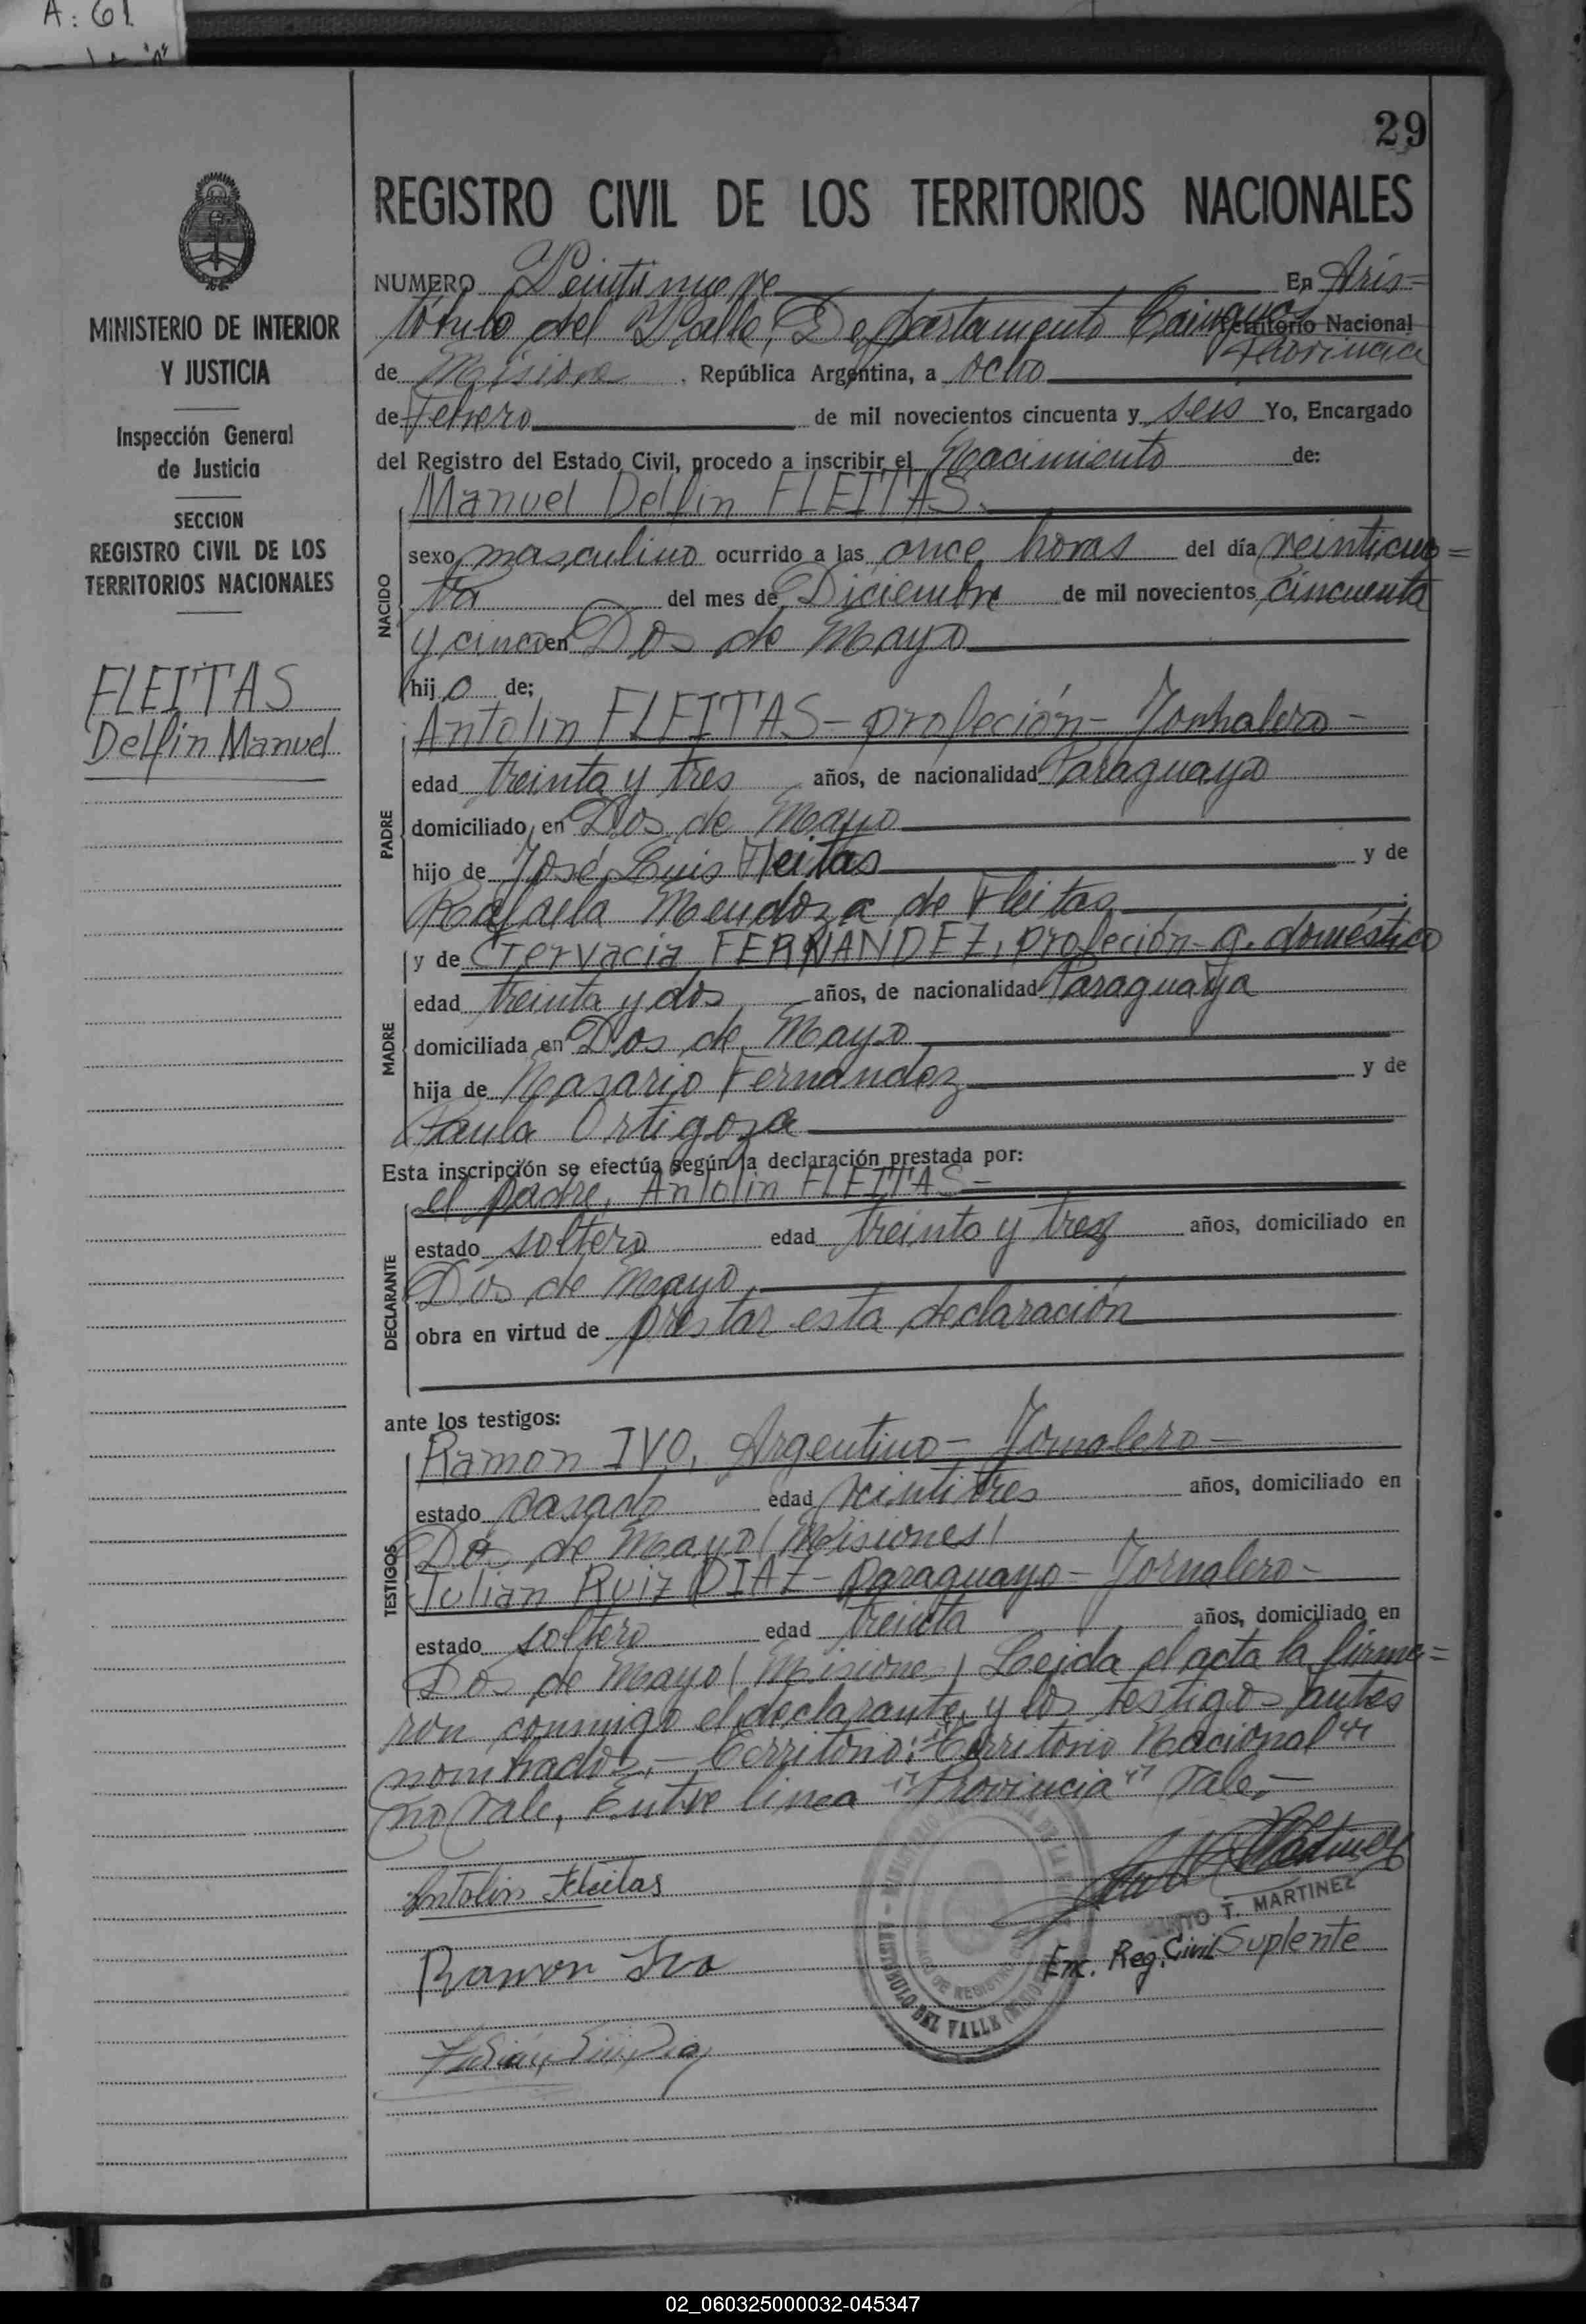 A: 61
29
REGISTRO CIVIL DE LOS TERRITORIOS NACIONALES
MINISTERIO DE INTERIOR
Y JUSTICIA
Inspección General
de Justicia
SECCION
REGISTRO CIVIL DE LOS
TERRITORIOS NACIONALES
FLEITAS
Delfin Manuel
NUMERO Veintinueve En Aris=
tóbulo del Valle, Departamento Cainguas Territorio Nacional
Provincia
de Misiones, República Argentina, a ocho
de Febrero de mil novecientos cincuenta y seis Yo, Encargado
del Registro del Estado Civil, procedo a inscribir el Nacimiento de:
NACIDO
Manuel Delfin FLEITAS.
sexo masculino ocurrido a las once horas del día veinticua=
tro del mes de Diciembre de mil novecientos cincuenta
y cinco en Dos de Mayo
hijo de;
PADRE
Antolin FLEITAS - profeción - Jornalero -
edad treinta y tres años, de nacionalidad Paraguayo
domiciliado en Dos de Mayo
hijo de José Luis Fleitas y de
Rafaela Mendoza de Fleitas
y de Gervacia FERNANDEZ, profeción - q. doméstico
MADRE
edad treinta y dos años, de nacionalidad Paraguaya
domiciliada en Dos de Mayo
hija de Nasario Fernandez y de
Paula Ortigoza
Esta inscripción se efectúa según la declaración prestada por:
DECLARANTE
el padre, Antolin FLEITAS -
estado soltero edad treinta y tres años, domiciliado en
Dos de Mayo
obra en virtud de prestar esta declaración
ante los testigos:
TESTIGOS
Ramon IVO, Argentino - Jornalero -
estado casado edad veintitres años, domiciliado en
Dos de Mayo (Misiones)
Julian Ruiz DIAZ - paraguayo - Jornalero -
estado soltero edad treinta años, domiciliado en
Dos de Mayo (Misiones) Leida el acta la firma=
ron conmigo el declarante y los testigos antes
nombrados. - Territorio: "Territorio Nacional"
no vale, Entre linea "Provincia" vale. -
Antolin Fleitas
T. MARTINEZ
Enc. Reg. Civil Suplente
Ramon Ivo
DEL VALLE
02_060325000032-045347